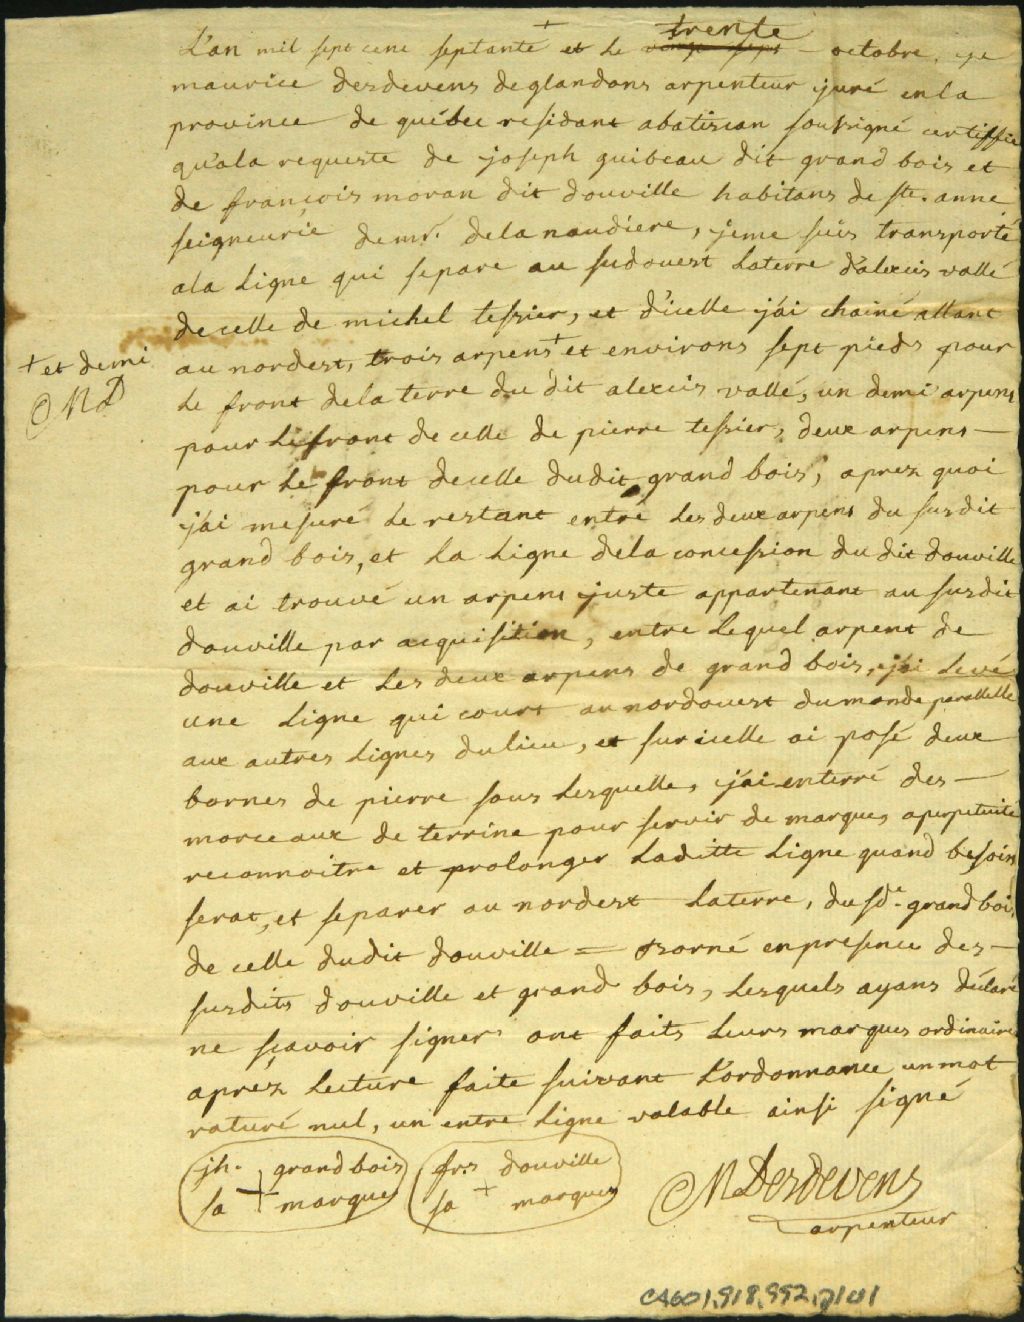 trente
L'an mil sept cent septante + et le vingt sept octobre, je
maurice desdevens deglandons arpenteur juré en la
province de québec residant abatiscan soussigné certiffie
qu'ala requeste de joseph guibeau dit grand bois et
de françois moran dit douville habitans de ste. anne
seigneurie de mr. delanaudiere, jeme suis transporté
ala ligne qui separe au sudouest laterre d'alexis vallé
decelle de michel tessier, et d'icelle j'ai chainé allant
au nordest, trois arpens + et environs sept pieds pour
+ et demi
MD
le front delaterre du dit alexis vallé, un demi arpens
pour lefront de celle de pierre tessier, deux arpens —
pour le front decelle dudit grand bois, aprez quoi
j'ai mesuré le restant entre les deux arpens du susdit
grand bois, et la ligne dela concession du dit douville
et ai trouvé un arpens juste appartenant au susdit
douville par acquisition, entre lequel arpent de
douville et les deux arpens de grand bois, j'ai levé
une ligne qui court au nordouest dumonde parallelle
aux autres lignes dulieu, et sur icelle ai posé deux
bornes de pierre sous lesquelles, j'ai enterré des —
morceaux de terrine pour servir de marques aperpetuité
reconnoitre et prolonger laditte ligne quand besoin
serat, et separer au nordest laterre, du sd. grand bois,
de celle dudit douville = Borné enpresence des —
susdits douville et grand bois, lesquels ayans déclaré
ne sçavoir signer ont faits leurs marques ordinaires
aprèz lecture faite suivant l'ordonnance un mot
raturé nul, un entre ligne valable ainsi signé
jh. grand bois
sa + marque
frs douville
sa + marque
MDesdevens
arpenteur
CA601,S18,SS2,D101